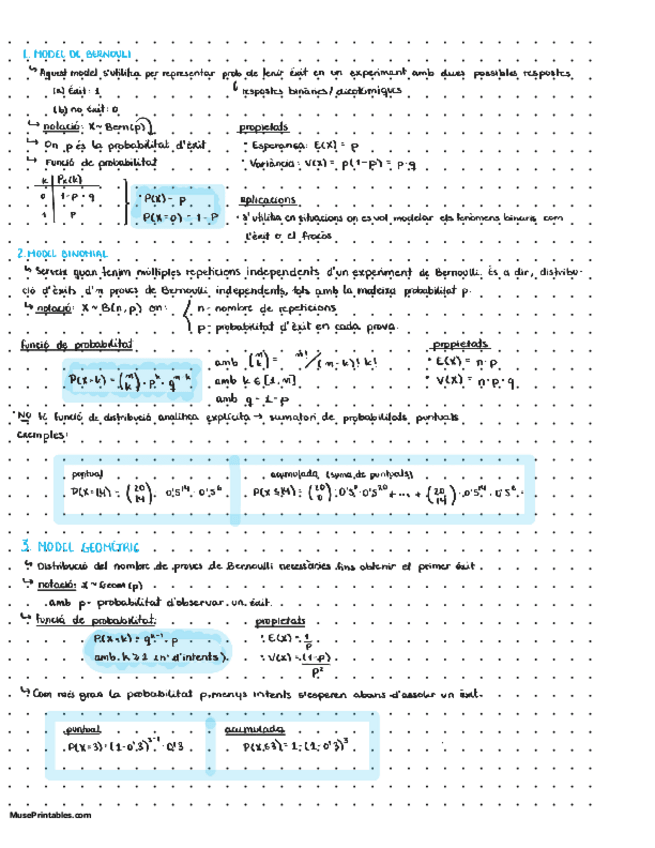 1. MODEL DE BERNOULLI
↳ Aquest model s'utilitza per representar prob de tenir èxit en un experiment amb dues possibles respostes
(a) èxit: 1
↳ respostes binàries/dicotòmiques
(b) no èxit: 0
↳ notació: X ~ Bern(p)
propietats
↳ On p és la probabilitat d'èxit
· Esperança: E(X) = p
↳ Funció de probabilitat
· Variància: V(X) = p(1-p) = p·q
k Px(k)
0 1-p = q
1 p
P(X) = p
P(X=0) = 1-p
aplicacions
· S'utilitza en situacions on es vol modelar els fenòmens binaris com
l'èxit o el fracàs
2. MODEL BINOMIAL
↳ Serveix quan tenim múltiples repeticions independents d'un experiment de Bernoulli. És a dir, distribu-
ció d'èxits d'n proves de Bernoulli independents, tots amb la mateixa probabilitat p.
↳ notació: X ~ B(n, p) on:
n = nombre de repeticions
p = probabilitat d'èxit en cada prova.
Funció de probabilitat
propietats
P(X=k) = (n k) · p^k · q^n-k
amb (n k) = n! / (n-k)! k!
amb k ∈ [1, n]
amb q = 1-p
· E(X) = n·p
· V(X) = n·p·q
· NO té funció de distribució analítica explícita → sumatori de probabilitats puntuals
Exemples:
puntual
P(X=14) = (20 14) · 0'5^14 · 0'5^6
acumulada (suma de puntuals)
P(X≤14) = (20 0) · 0'5^0 · 0'5^20 + ... + (20 14) · 0'5^14 · 0'5^6
3. MODEL GEOMÈTRIC
↳ Distribució del nombre de proves de Bernoulli necessàries fins obtenir el primer èxit.
↳ notació: X ~ Geom(p)
amb p = probabilitat d'observar un èxit.
↳ Funció de probabilitat:
propietats
P(X=k) = q^k-1 · p
amb k ≥ 1 (nº d'intents)
· E(X) = 1/p
· V(X) = (1-p)/p²
↳ Com més gran la probabilitat p, menys intents s'esperen abans d'assolir un èxit.
puntual
P(X=3) = (1-0'3)^3-1 · 0'3
acumulada
P(X≤3) = 1 - (1-0'3)^3
MusePrintables.com